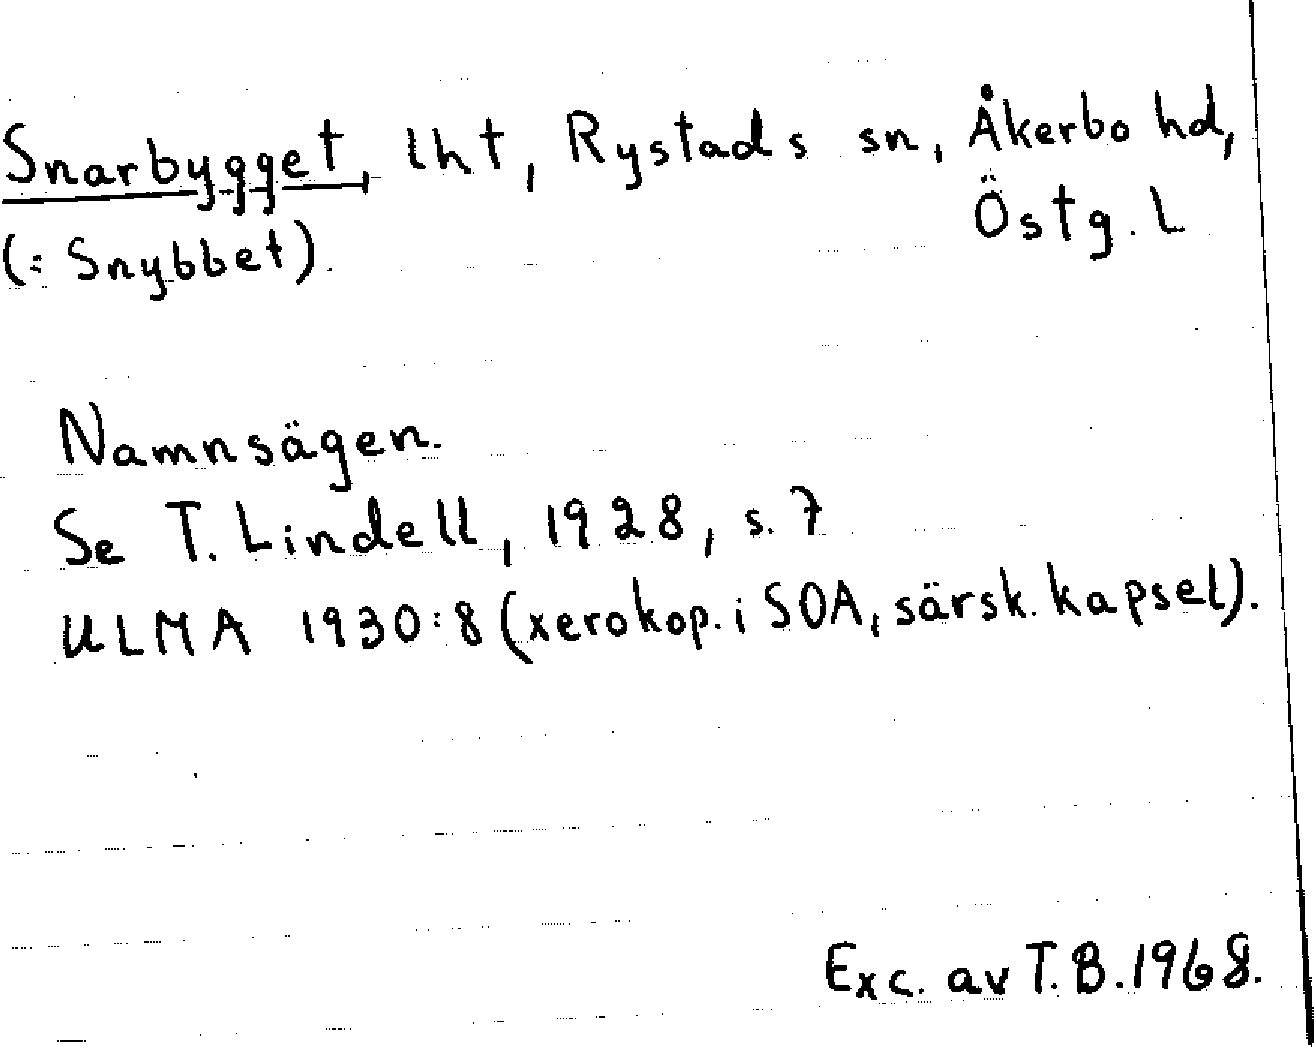 Snarbygget, lht, Rystads sn, Åkerbo hd,
Östg. L
(= Snybbet).
Namnsägen.
Se T. Lindell, 1928, s. 7
ULMA 1930:8 (xerokop. i SOA, särsk. kapsel).
Exc. av T.B. 1968.